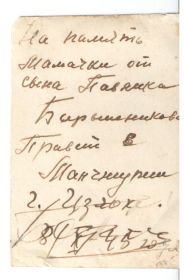 На память
Мамачки от
сына Павлика
Барышникова
Привет в
Манчжурии
г. Цзян
8/X 45 года